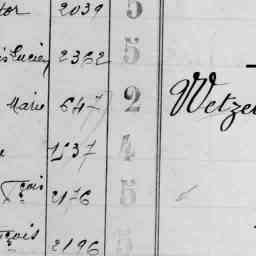 tor 2039 5
is Lucien 2362 5
Marie 647 2 Wetzel
e 1537 4
Fçois 2176 5
çois 2196 5